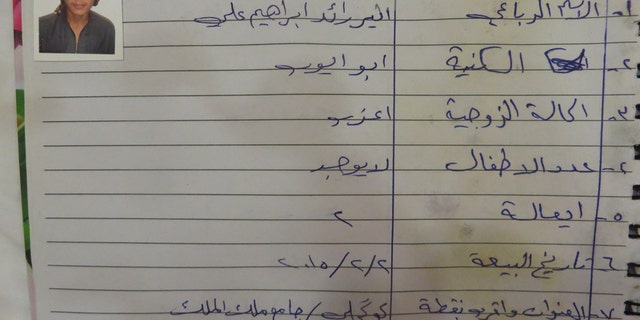 ١- الاسم الرباعي البير رائد ابراهيم علي
٢- الكنية ابو ايوب
٣- الحالة الزوجية اعزب
٤- عدد الاطفال لا يوجد
٥- ايعالة ٢
٦- تاريخ البيعة ٢٠١٥/٢/٢
٧- العنوان واقرب نقطة كوكجلي / جامع ملك الملك